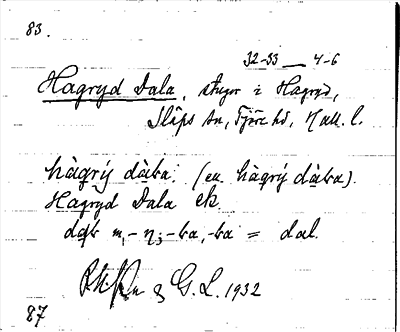 83.
32-33 — 4-6
Hagryd Dala, stugor i Hagryd,
Släps sn, Fjäre hd, Hall. l.
hàgrý dàɩ̀a. (en. hàgrý dàɩ̀a).
Hagryd Dala ek
dgb m, - n; -ɩa, -ɩa = dal.
& G. L. 1932
87